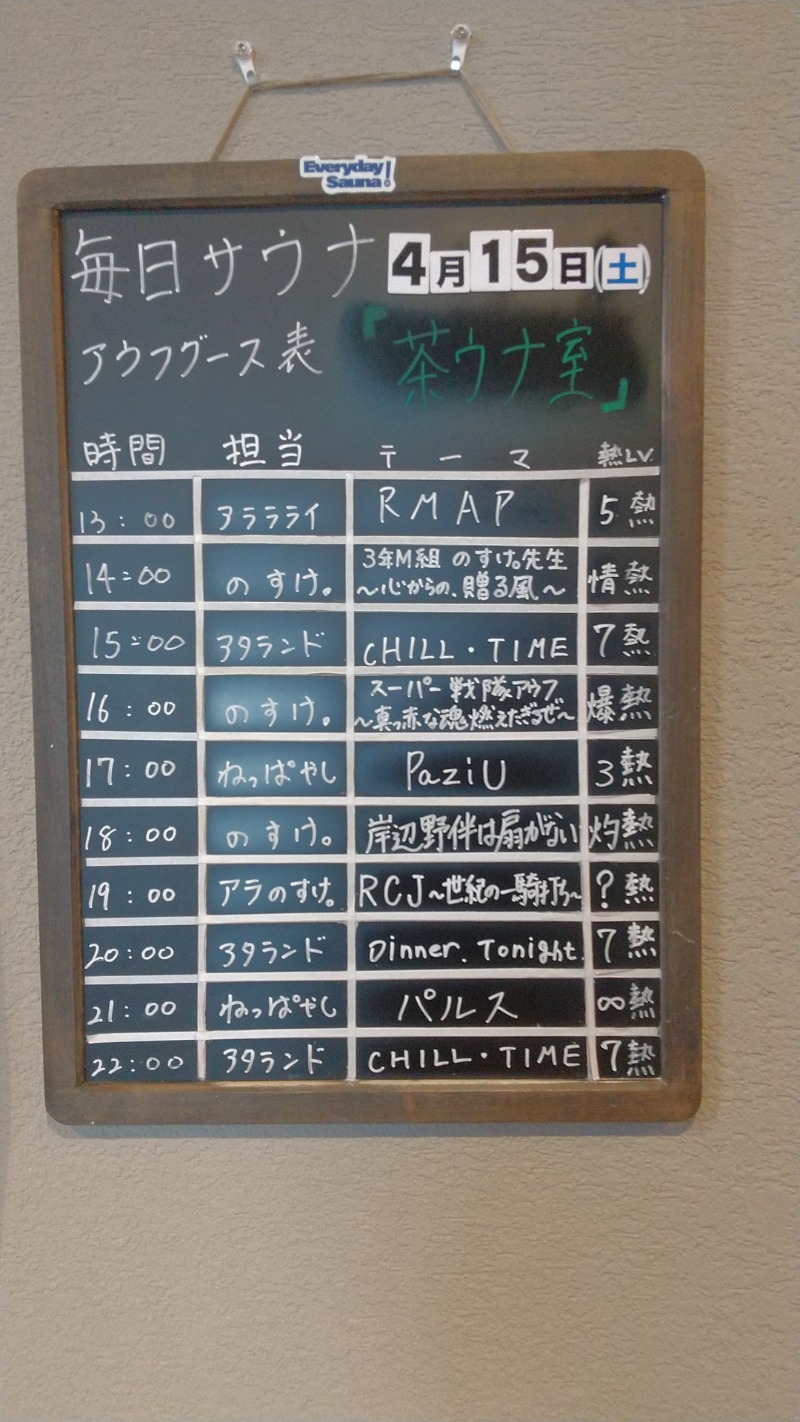 Everyday
Sauna!
毎日サウナ 4月15日(土)
アウフグース表 「茶ウナ室」
時間 担当 テーマ 熱LV.
13:00 アラララライ RMAP 5熱
14:00 のすけ。 3年M組 のすけ。先生
～心からの、贈る風～ 情熱
15:00 ヨタランド CHILL・TIME 7熱
16:00 のすけ。 スーパー戦隊アウフ
～真っ赤な魂燃えたぎるぜ～ 爆熱
17:00 ねっぱやし PaziU 3熱
18:00 のすけ。 岸辺野伴は扇がない 灼熱
19:00 アラのすけ。 RCJ～世紀の一騎打ち～ ?熱
20:00 ヨタランド Dinner.Tonight. 7熱
21:00 ねっぱやし パルス ∞熱
22:00 ヨタランド CHILL・TIME 7熱